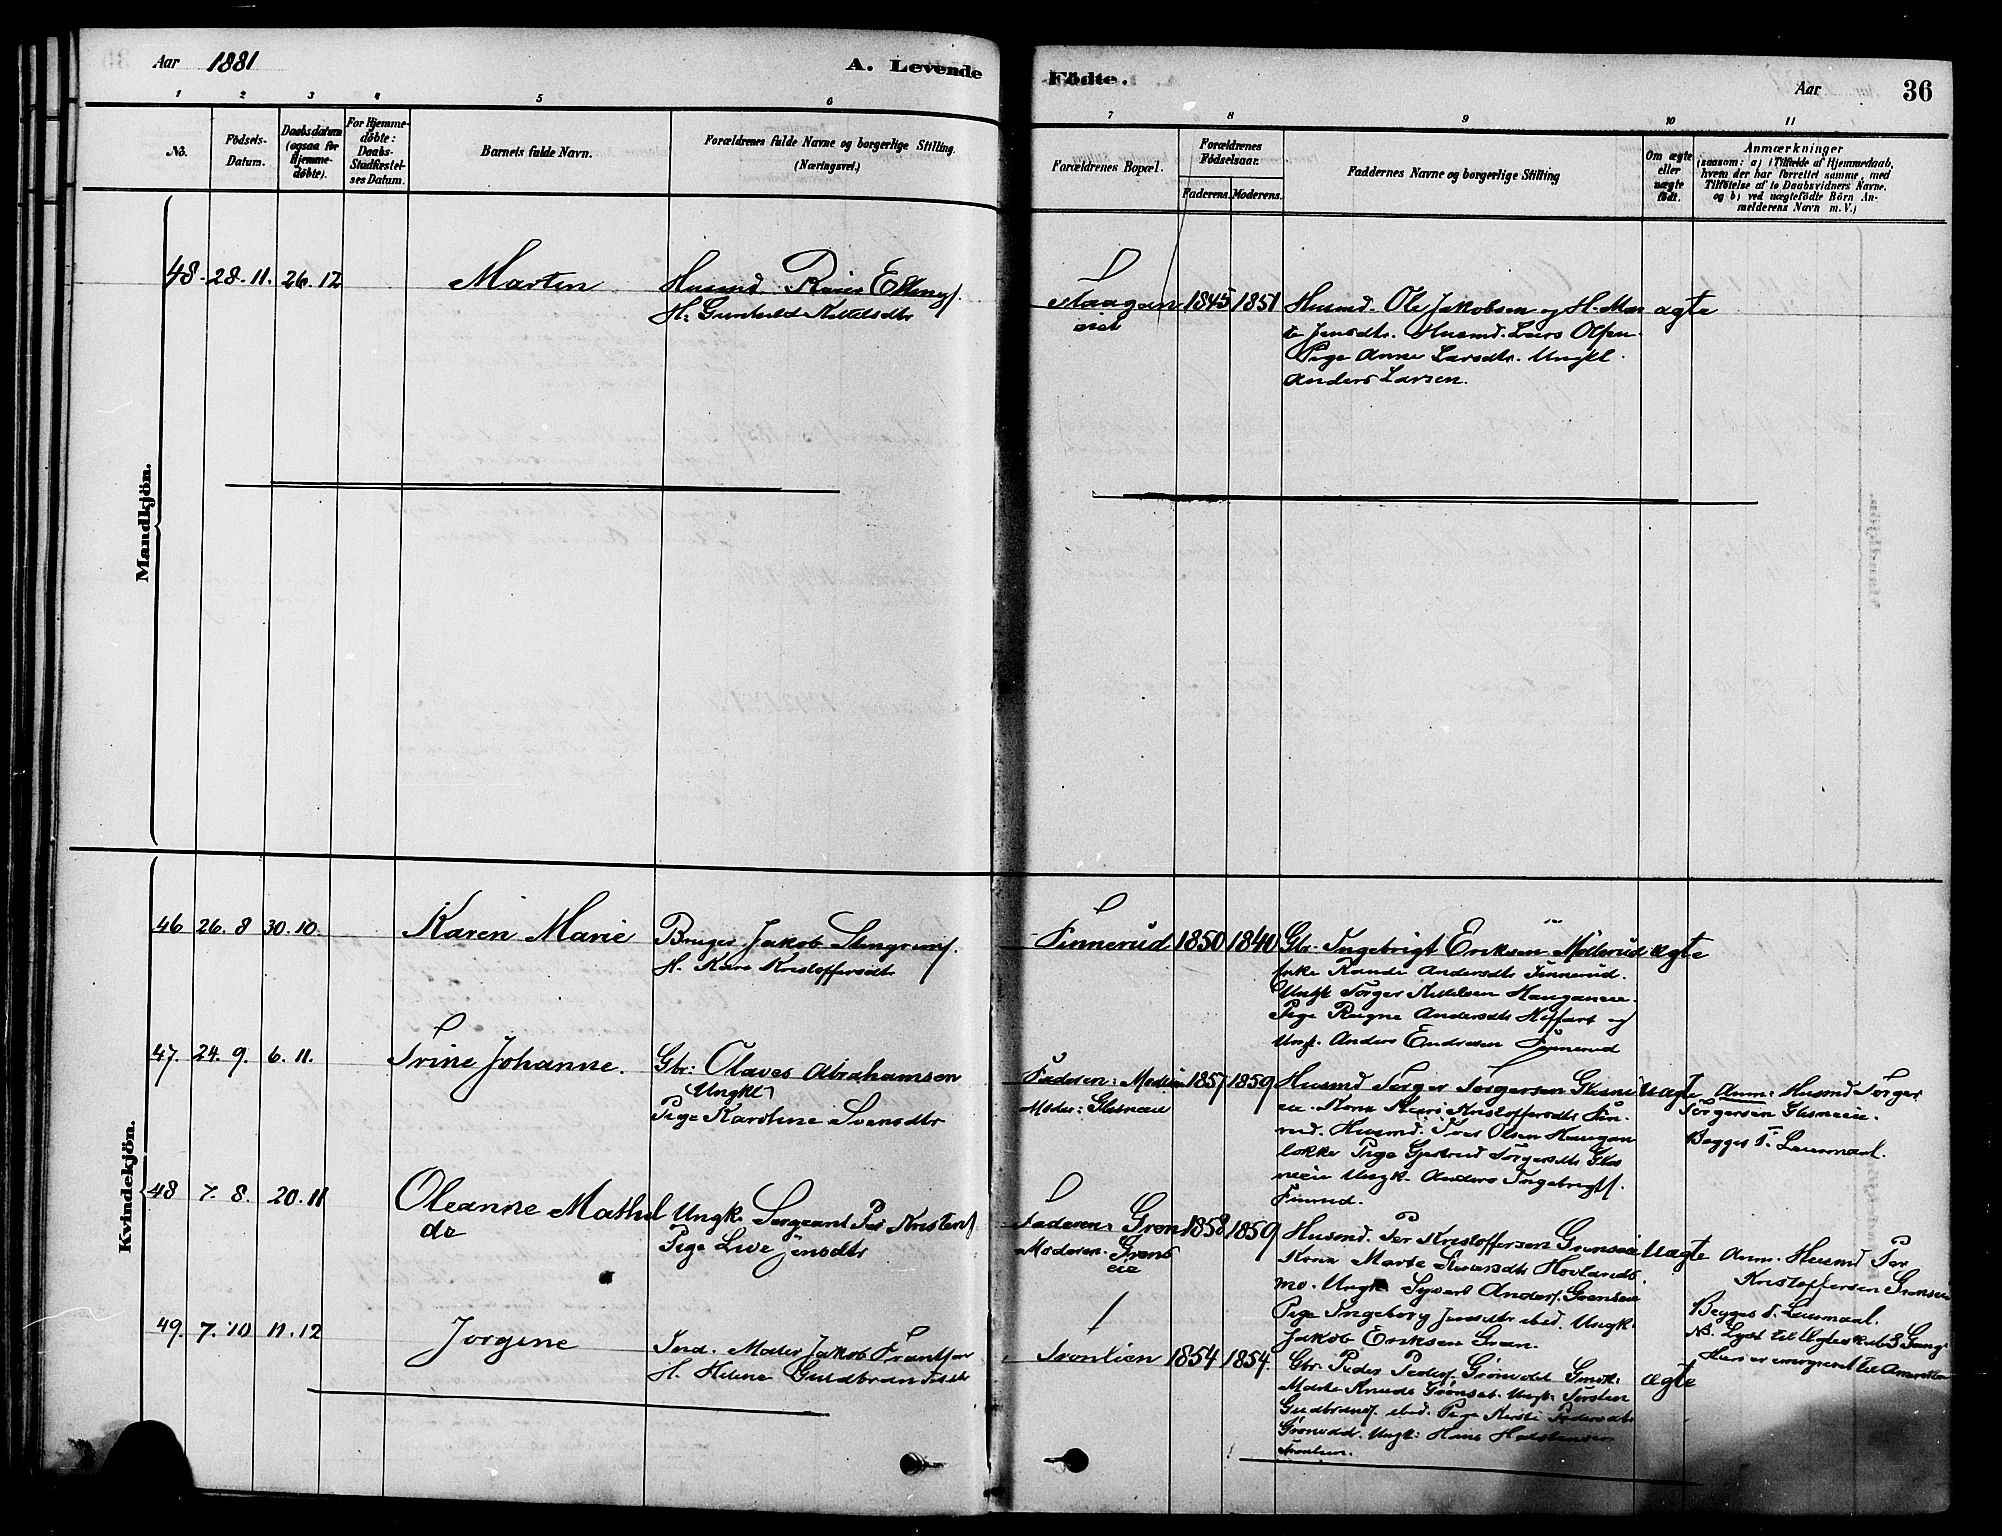 Aar 1881
A. Levende
Födte.
Aar
36
1 2 3 4 5 6
7 8 9 10 11
No.
Födsels-
Datum.
Daabsdatum
(ogsaa for
Hjemme-
döbte).
For Hjemme-
döbte:
Daabs-
Stadfæstel-
ses Datum.
Barnets fulde Navn.
Forældrenes fulde Navne og borgerlige Stilling.
(Næringsvei.)
Forældrenes Bopæl.
Forældrenes
Födselsaar.
Faderens. Moderens.
Faddernes Navne og borgerlige Stilling
Om ægte
eller
uægte
födt.
Anmærkninger
(saasom: a) i Tilfælde af Hjemmedaab,
hvem der har forrettet samme, med
Tilföielse af to Daabsvidners Navne,
og b) ved uægtefödte Börn An-
melderens Navn m. V.)
Mandkjön.
48. 28. 11. 26. 12
Martin
Husmd
H: Gunhild Kittelsdtr
Haagen
eiet
1845 1851
Husmd. Ole Jakobsen og H. Mar
te Jensdtr. Husmd. Lars Olsen
Pige Anne Larsdtr. Ungkl.
Anders Larsen.
ægte
Kvindekjön.
46 26. 8 30. 10
Karen Marie
Bruger Jakob
H. Kari Kristoffersdtr
Finnerud
1850 1840
Gbr. Ingebrigt Eriksen Möllerud
Enke Randi Andersdtr Finnerud.
Ungk Torger Kittelsen Hauganeie.
Pige Ragne Andersdtr og
Ungk. Anders Endresen Finnerud
ægte
47. 24. 9. 6. 11.
Trine Johanne.
Gbr: Olaves Abrahamsen
(Ungkl)
Pige Karoline Svensdtr
Faderen:
Moder: Glesneeie
1857 1859
Husmd Torger Torgersen Glesne
eie. Kone Kari Kristoffersdtr Fin
rud. Husmd. Iver Olsen Haugan
lökke Pige Gjertrud Torgersdtr Gles
neeie Ungk. Anders Ingebrigts.
Finrud.
Uægte
Anm: Husmd Torger
Torgersen Glesneeie.
Begges 1ste Leiermaal.
48 7. 8. 20. 11
Oleanne Mathil
de
Ungk. Sergeant Per Kristens.
Pige Live Jensdtr
Faderen: Grøn
Moderen. Grøns
eie
1858 1859
Husmd. Per Kristoffersen Grønseie
Kone Marte Hovlands
mo. Ungk Syvert Anders. Grønseie
Pige Ingeborg Jensdtr ibid. Ungk.
Jakob Eriksen Grøn.
Uægte
Anm. Husmd Per
Kristoffersen Grønseie
Begges 1. Leiermaal.
NB. Lyst til Ægteskab 3 Gange
Han er emigreret til Amerika
49. 7. 10 11. 12
Jörgine
Ind. Maler Jakob Frantsen
H. Helene Guldbrandsdtr
Tronlien
1854 1854.
Gbr. Peder Peders. Grönvold
Marte Knuds Grönset. Ungk: Torsten
Gudbrands. ibid. Pige Kersti Pedersdtr
Grönvold. Ungk: Hans
Tronlien.
ægte